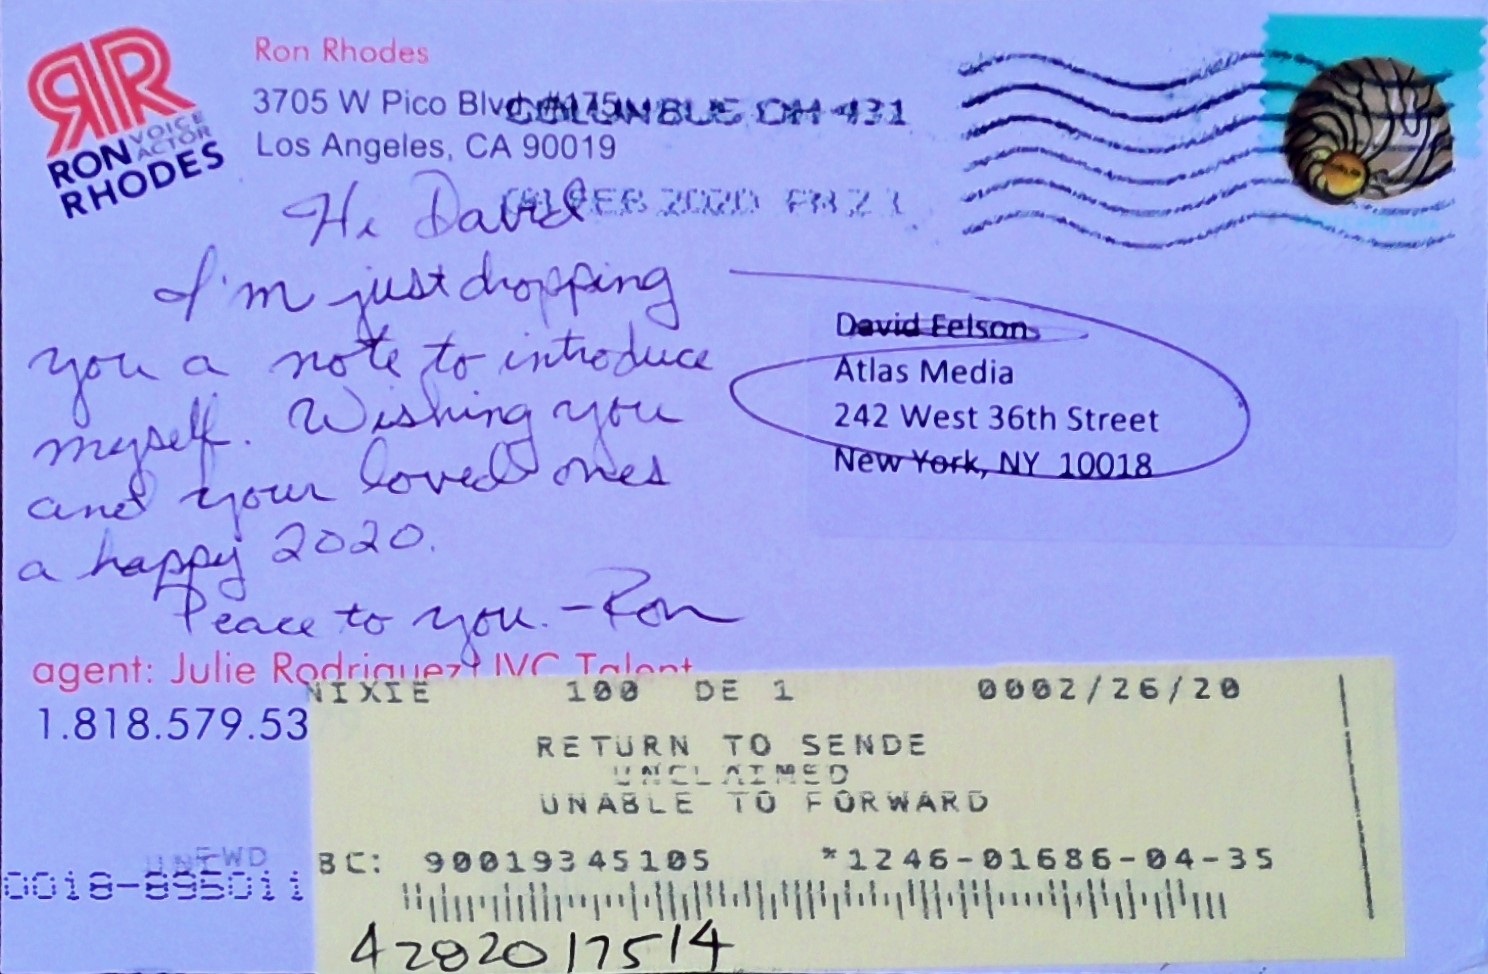 RR
RON VOICE ACTOR
RHODES
Ron Rhodes
3705 W Pico Blvd #175
Los Angeles, CA 90019
COLUMBUS OH 431
FEB 2020 PM 2
Hi David
I'm just dropping
you a note to introduce
myself. Wishing you
and your loved ones
a happy 2020.
Peace to you. –Ron
David Felson
Atlas Media
242 West 36th Street
New York, NY 10018
agent: Julie Rodriguez, JVC Talent
1.818.579.53
NIXIE 100 DE 1 0002/26/20
RETURN TO SENDE
UNCLAIMED
UNABLE TO FORWARD
FWD
BC: 90019345105 *1246-01686-04-35
0018-895011
4202017514